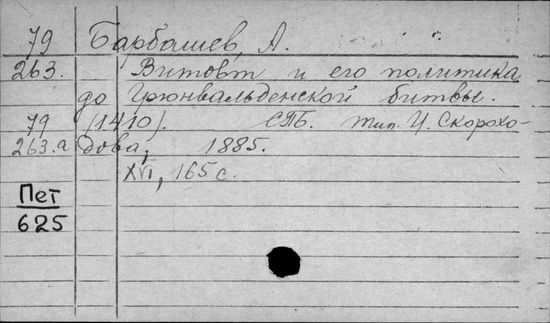 79 Барбашев, А.
263. Витовт и его политика
до Грюнвальденской битвы.
79 (1410). СПБ. тип. И. Скорохо-
263.а дова, 1885.
XVI, 165 с.
Пет
625